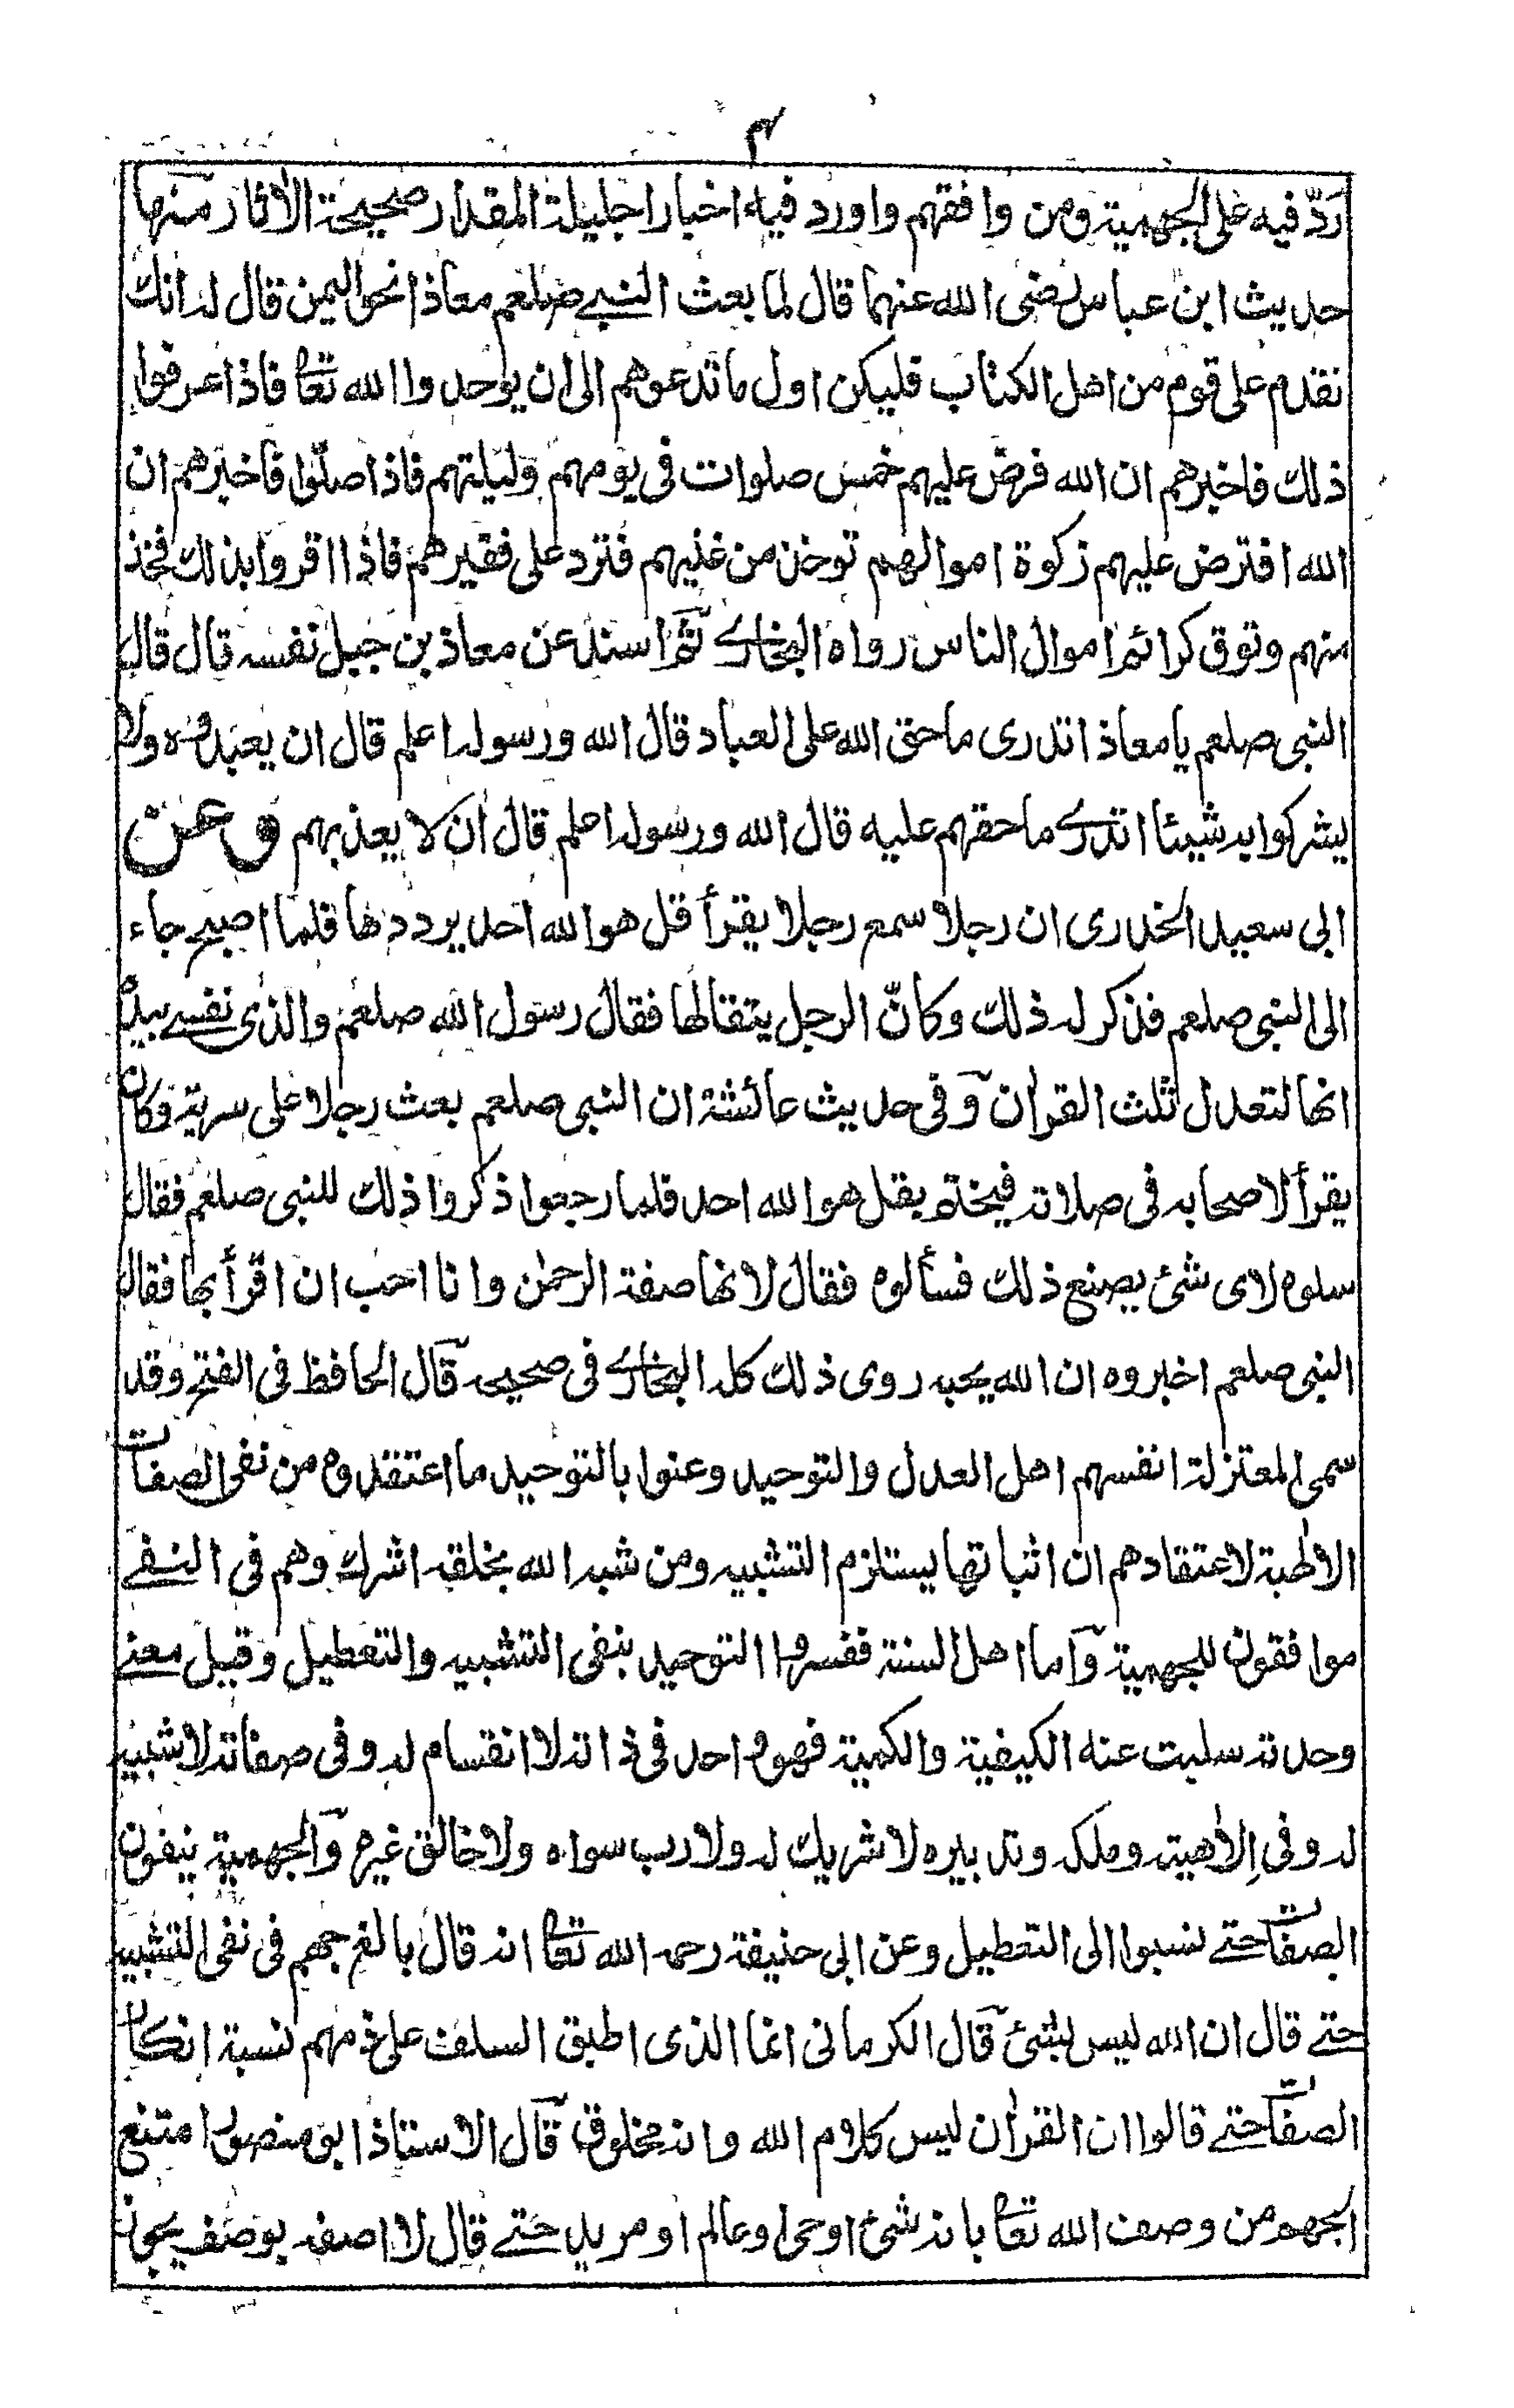 ۴
ردّ فيه على الجهمية ومن وافقهم واورد فيه اخبارا جليلة المقدار صحيحة الاٰثار منها
حديث ابن عباس رضى الله عنهما قال لما بعث النبے صلعم معاذا نحو اليمن قال له انك
تقدم على قوم من اهل الكتاب فليكن اول ما تدعوهم الى ان يوحدوا الله تعالٰے فاذا عرفوا
ذلك فاخبرهم ان الله فرض عليهم خمس صلوات فى يومهم وليلتهم فاذا صلّوا فاخبرهم ان
الله افترض عليهم زكوة اموالهم توخذ من غنيهم فترد على فقيرهم فاذا اقروا بذلك فخذ
منهم وتوق كرائم اموال الناس رواه البخارے ثم اسند عن معاذ بن جبل نفسه قال قال
النبى صلعم يا معاذ اتدرى ما حق الله على العباد قال الله ورسوله اعلم قال ان يعبدوه ولا
يشركوا به شيئا اتدرے ما حقهم عليه قال الله ورسوله اعلم قال ان لا يعذبهم وعن
ابى سعيد الخدرى ان رجلا سمع رجلا يقرأ قل هو الله احد يرددها فلما اصبح جاء
الى النبى صلعم فذكر له ذلك وكانّ الرجل يتقالها فقال رسول الله صلعم والذى نفسے بيده
انها لتعدل ثلث القراٰن وفى حديث عائشة ان النبى صلعم بعث رجلا على سرية وكان
يقرأ لاصحابه فى صلاته فيختم بقل هو الله احد فلما رجعوا ذكروا ذلك للنبى صلعم فقال
سلوه لاى شئ يصنع ذلك فسألوه فقال لانها صفة الرحمٰن وانا احب ان اقرأ بها فقال
النبى صلعم اخبروه ان الله يحبه روى ذلك كله البخارے فى صحيحه قال الحافظ فى الفتح وقد
سمى المعتزلة انفسهم اهل العدل والتوحيد وعنوا بالتوحيد ما اعتقدوه من نفى الصفات
الالٰهية لاعتقادهم ان اثباتها يستلزم التشبيه ومن شبه الله بخلقه اشرك وهم فى النفے
موافقون للجهمية وآما اهل السنة ففسروا التوحيد بنفى التشبيه والتعطيل وقيل معنے
وحدته سلبت عنه الكيفية والكمية فهو واحد فى ذاته لا انقسام له وفى صفاته لا شبيه
له وفى اِلاٰهيته وملكه وتدبيره لا شريك له ولا رب سواه ولا خالق غيره والجهمية ينفون
الصفات حتے نسبوا الى التعطيل وعن ابى حنيفة رحمه الله تعالٰے انه قال بالغ جهم فى نفى التشبيه
حتے قال ان الله ليس بشئ قال الكرمانى انما الذى اطبق السلف على ذمهم نسبة انكار
الصفات حتے قالوا ان القراٰن ليس كلام الله وانه مخلوق قال الاستاذ ابو منصور امتنع
الجهم من وصف الله تعالٰے بانه شئ او حى او عالم او مريد حتے قال لا اصفه بوصف يجوز